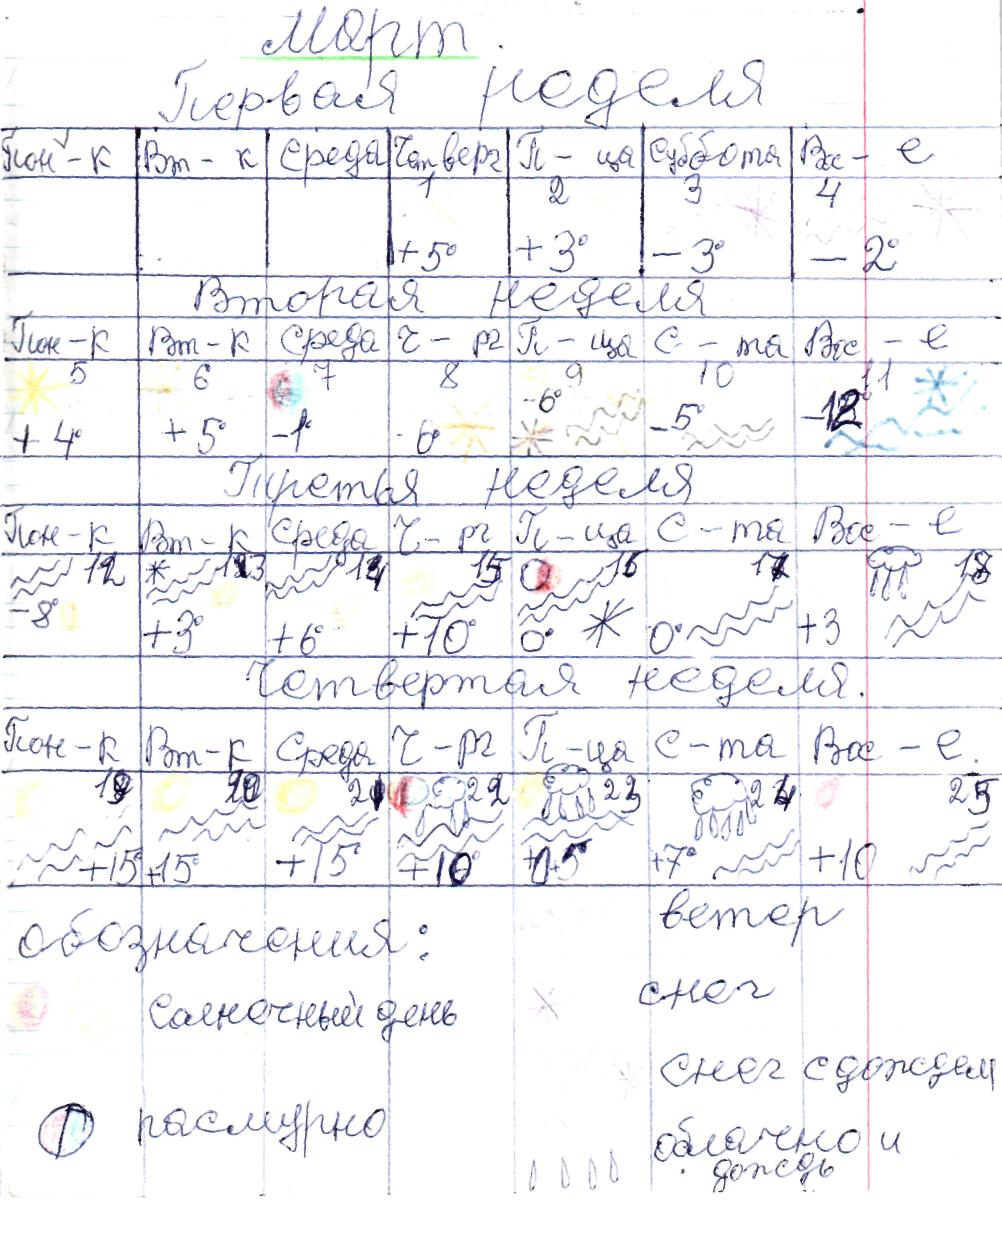 Март.
Первая неделя
Пон-к Вт-к Среда Четверг П-ца Суббота Вос-е
1 2 3 4
+5° +3° -3° -2°
Вторая неделя
Пон-к Вт-к Среда Ч-рг П-ца С-та Вос-е
5 6 7 8 9 10 11
+4° +5° -1° -6° -6° -5° -12°
Третья неделя
Пон-к Вт-к Среда Ч-рг П-ца С-та Вос-е
12 13 14 15 16 17 18
-8° +3° +6° +10° 0° 0° +3
Четвертая неделя.
Пон-к Вт-к Среда Ч-рг П-ца С-та Вос-е.
19 20 21 22 23 24 25
+15° +15° +15° +10° +7° +10
обозначения:
солнечный день
пасмурно
ветер
снег
снег с дождем
облачно и
дождь